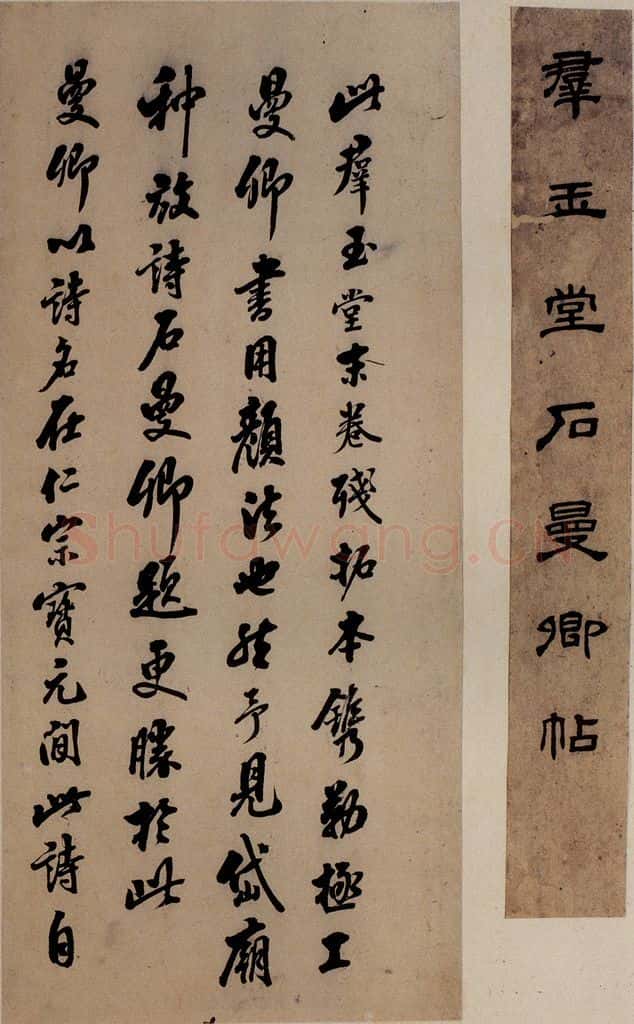 羣玉堂石曼卿帖
此羣玉堂末卷殘拓本鐫勒極工
曼卿書用顏法也然予見岱廟
种放詩石曼卿題更勝於此
曼卿以詩名在仁宗寶元間此詩自
Shufawang.CN